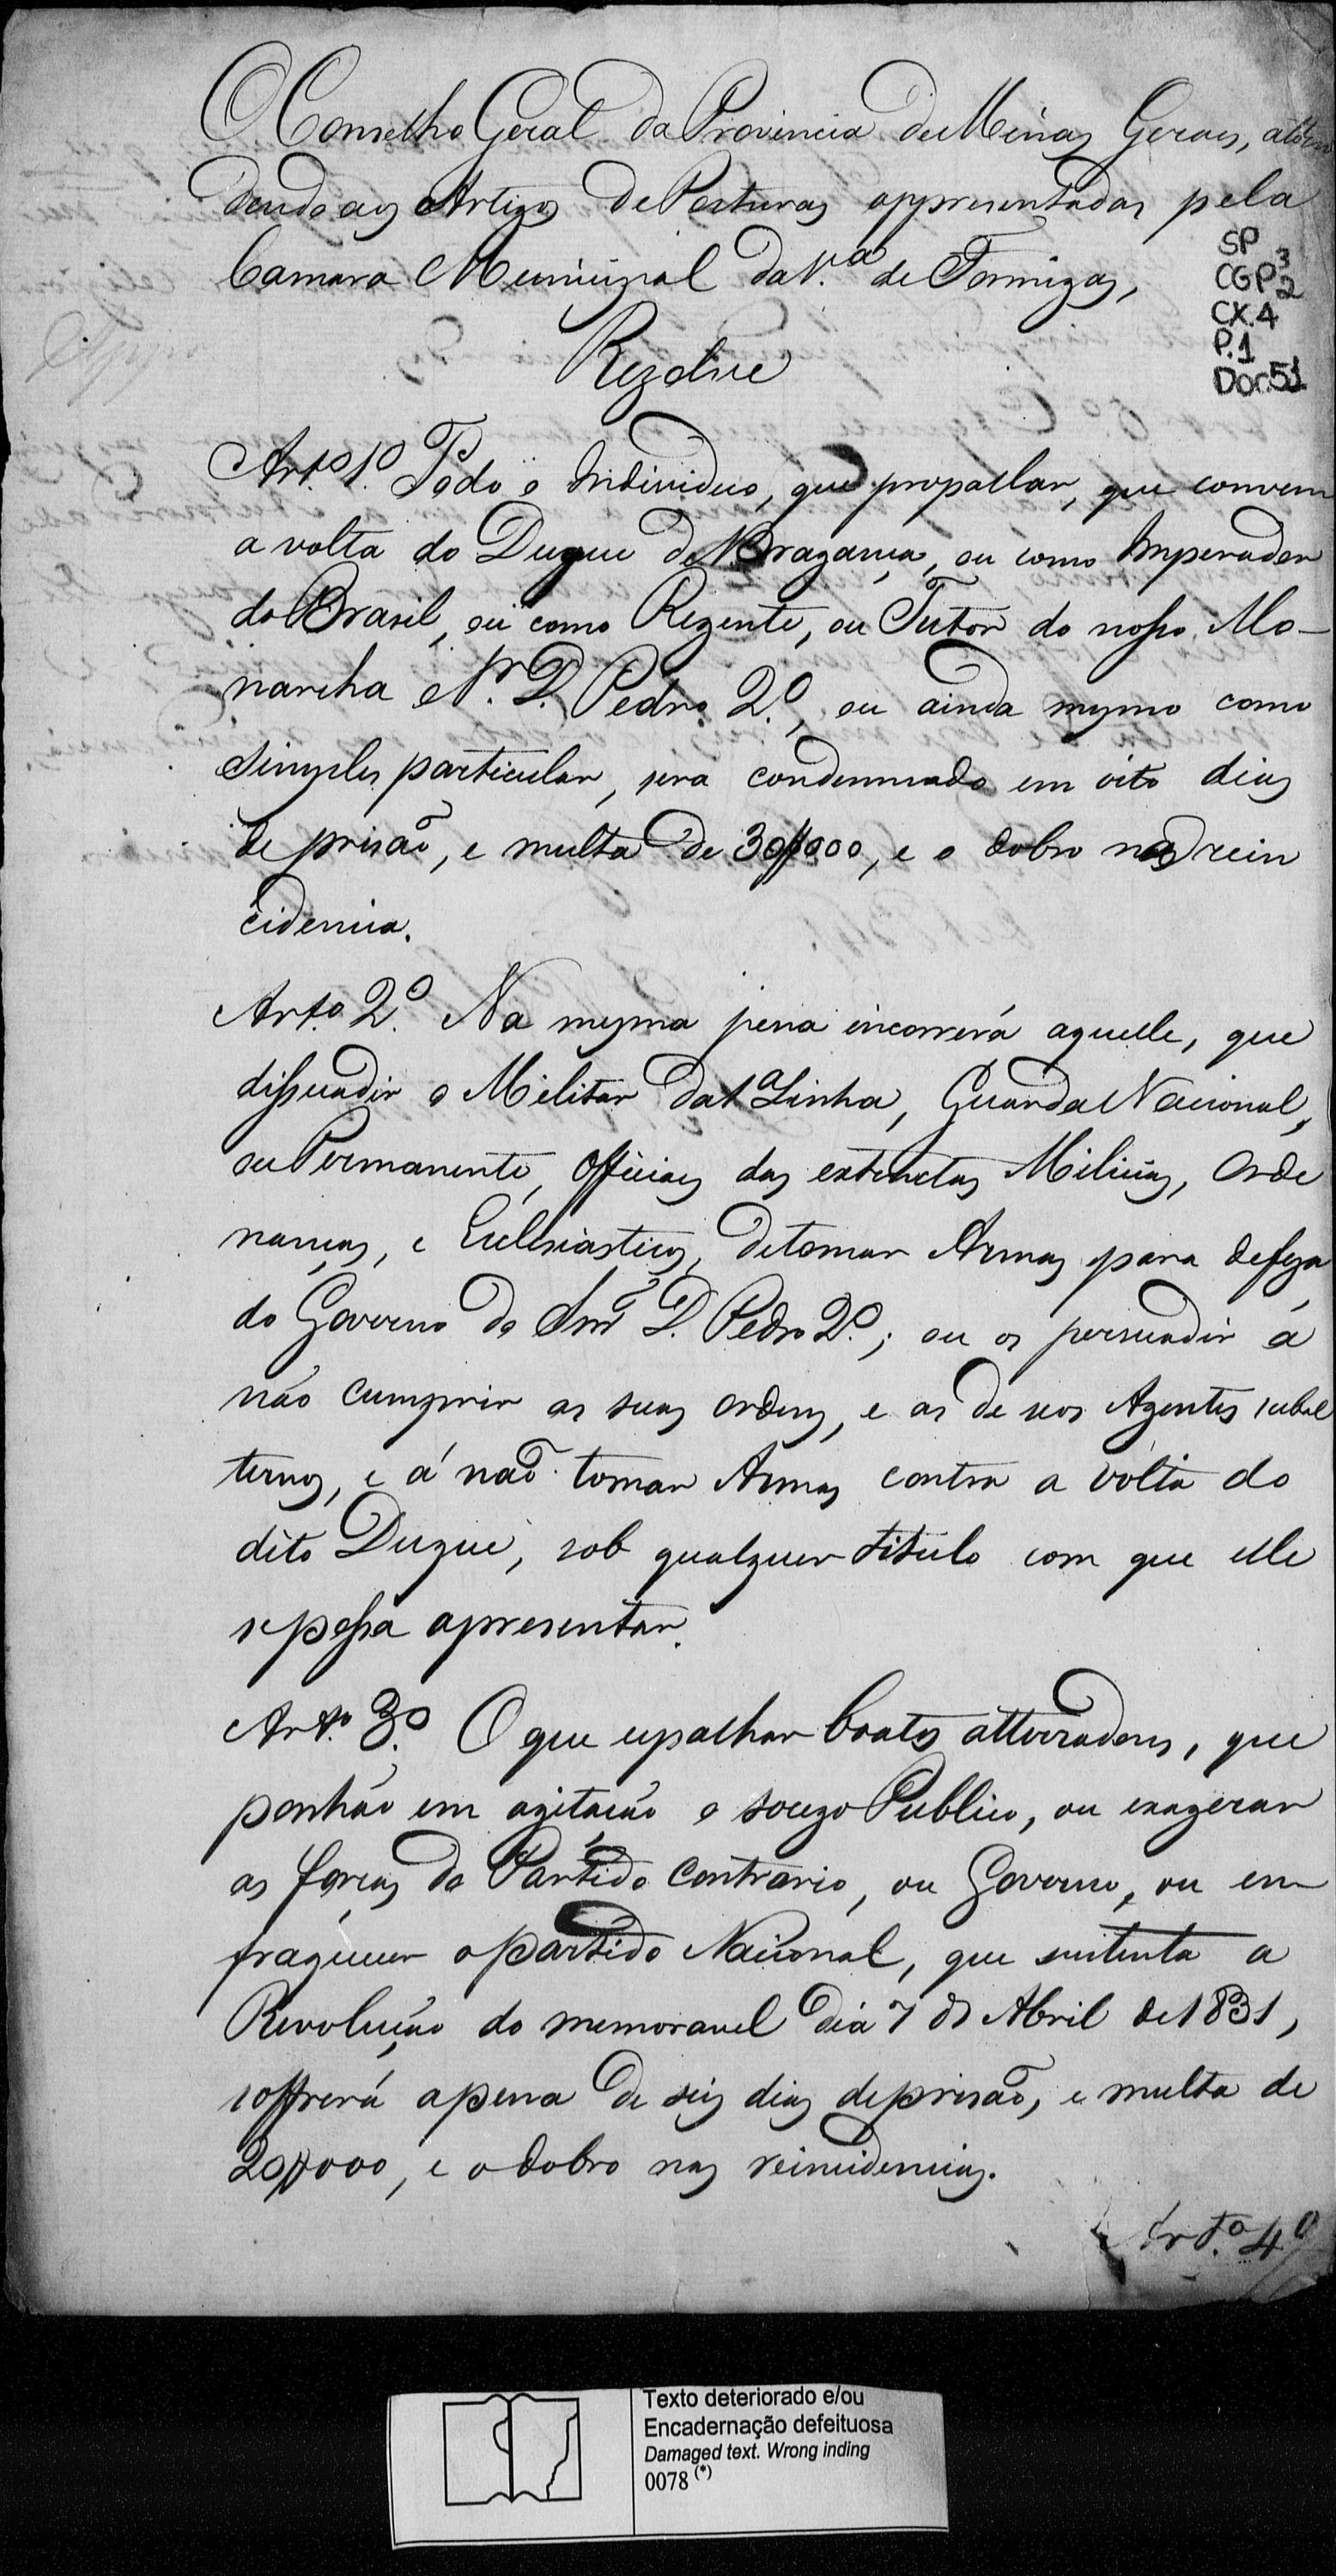 O Conselho Geral da Provincia de Minas Geraes, atten
dendo aos Artigos de Posturas appresentadas pela
Camara Municipal da V.ª de Formigas,
SP
CGP³2
CX.4
P.1
Doc.51
Rezolve
Art.º 1.º Todo o Individuo, que propallar, que convem
a volta do Duque de Bragança, ou como Imperador
do Brasil, ou como Regente, ou Tutor do nosso Mo-
narcha o Sr. D. Pedro 2.º, ou ainda mesmo como
simples particular, sera condemnado em oito dias
de prisão, e multa de 30$000, e o dobro na rein
cidencia.
Art.º 2.º Na mesma pena incorrerá aquelle, que
dissuadir o Militar da 1.ª Linha, Guarda Nacional,
ou Permanente, Officiaes das extinctas Milicias, Orde
nanças, e Ecclesiasticos, de tomar Armas para defeza
do Governo do Snr. D. Pedro 2.º; ou os persuadir á
não cumprir as suas ordens, e as de seos Agentes subal
ternos, e á não tomar Armas contra a volta do
dito Duque, sob qualquer titulo com que elle
se possa apresentar.
Art.º 3.º O que espalhar boatos atterradores, que
ponhão em agitação o socego Publico, ou exagerar
as forças do Partido contrario, ou Governo, ou en-
fraquecer o partido Nacional, que sustenta a
Revolução do memoravel dia 7 de Abril de 1831,
soffrerá a pena de seis dias de prisão, e multa de
20$000, e o dobro nas reincidencias.
Art.º 4.º
Texto deteriorado e/ou
Encadernação defeituosa
Damaged text. Wrong inding
0078 (*)